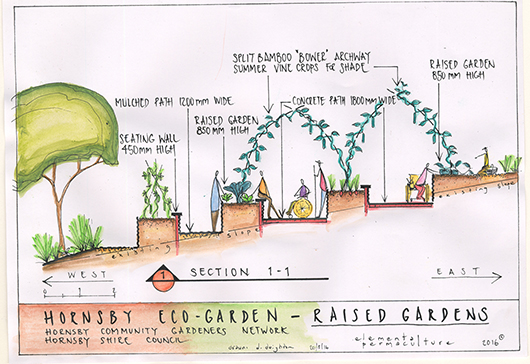 SPLIT BAMBOO "BOWER" ARCHWAY
SUMMER VINE CROPS FOR SHADE
RAISED GARDEN
850 MM HIGH
MULCHED PATH 1200MM WIDE
CONCRETE PATH 1800MM WIDE
RAISED GARDEN
850MM HIGH
SEATING WALL
450MM HIGH
existing slope
existing slope
WEST
1
SECTION 1-1
EAST
0 1 2
HORNSBY ECO-GARDEN - RAISED GARDENS
HORNSBY COMMUNITY GARDENERS NETWORK
HORNSBY SHIRE COUNCIL
elemental
permaculture
2016